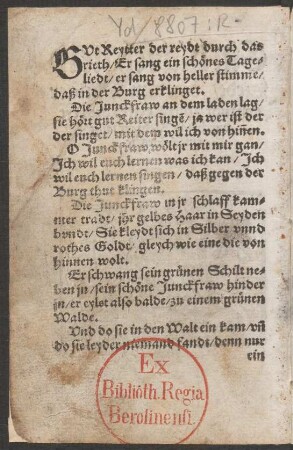 Yd 8807:R.
GUt Reytter der reydt durch das
Rieth/ Er sang ein schönes Tage-
liedt/ er sang von heller stimme/
daß in der Burg erklinget.
Die Junckfraw an dem laden lag/
sie hört gut Reiter singē/ ja wer ist der
der singet/ mit dem wil ich von hiñen.
O Junckfraw, wölt jr mit mir gan/
Ich wil euch lernen was ich kan/ Ich
wil euch lernen singen/ daß gegen der
Burg thut klingen.
Die Junckfraw in jr schlaff kam-
mer tradt/ jhr gelbes Haar in Seyden
bandt/ Sie kleydt sich in Silber vnnd
rothes Goldt/ gleych wie eine die von
hinnen wolt.
Er schwang sein grünen Schilt ne-
ben jn/ sein schöne Junckfraw hinder
jn/ er eylet also balde/ zu einem grünen
Walde.
Vnd do sie in den Walt ein kam/ vñ
do sie leyder niemand fandt/ denn nur
ein
Ex
Biblioth. Regia
Berolinensi.